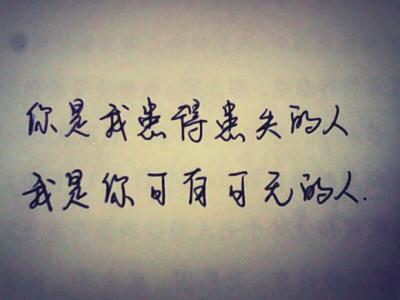 你是我患得患失的人
我是你可有可无的人.